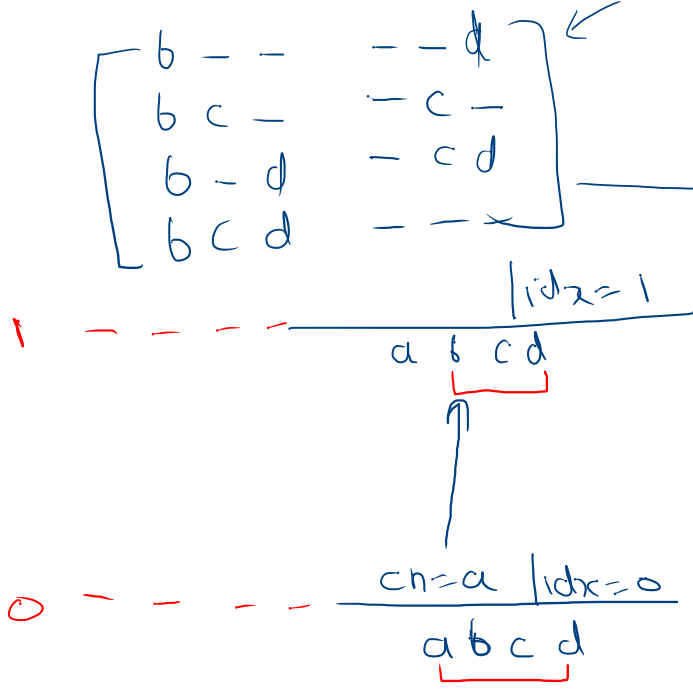 b – –   – – d
b c –   – c –
b – d   – c d
b c d   – – –
|idx = 1
1 – – – –
a b c d
ch = a |idx = 0
0 – – – –
a b c d